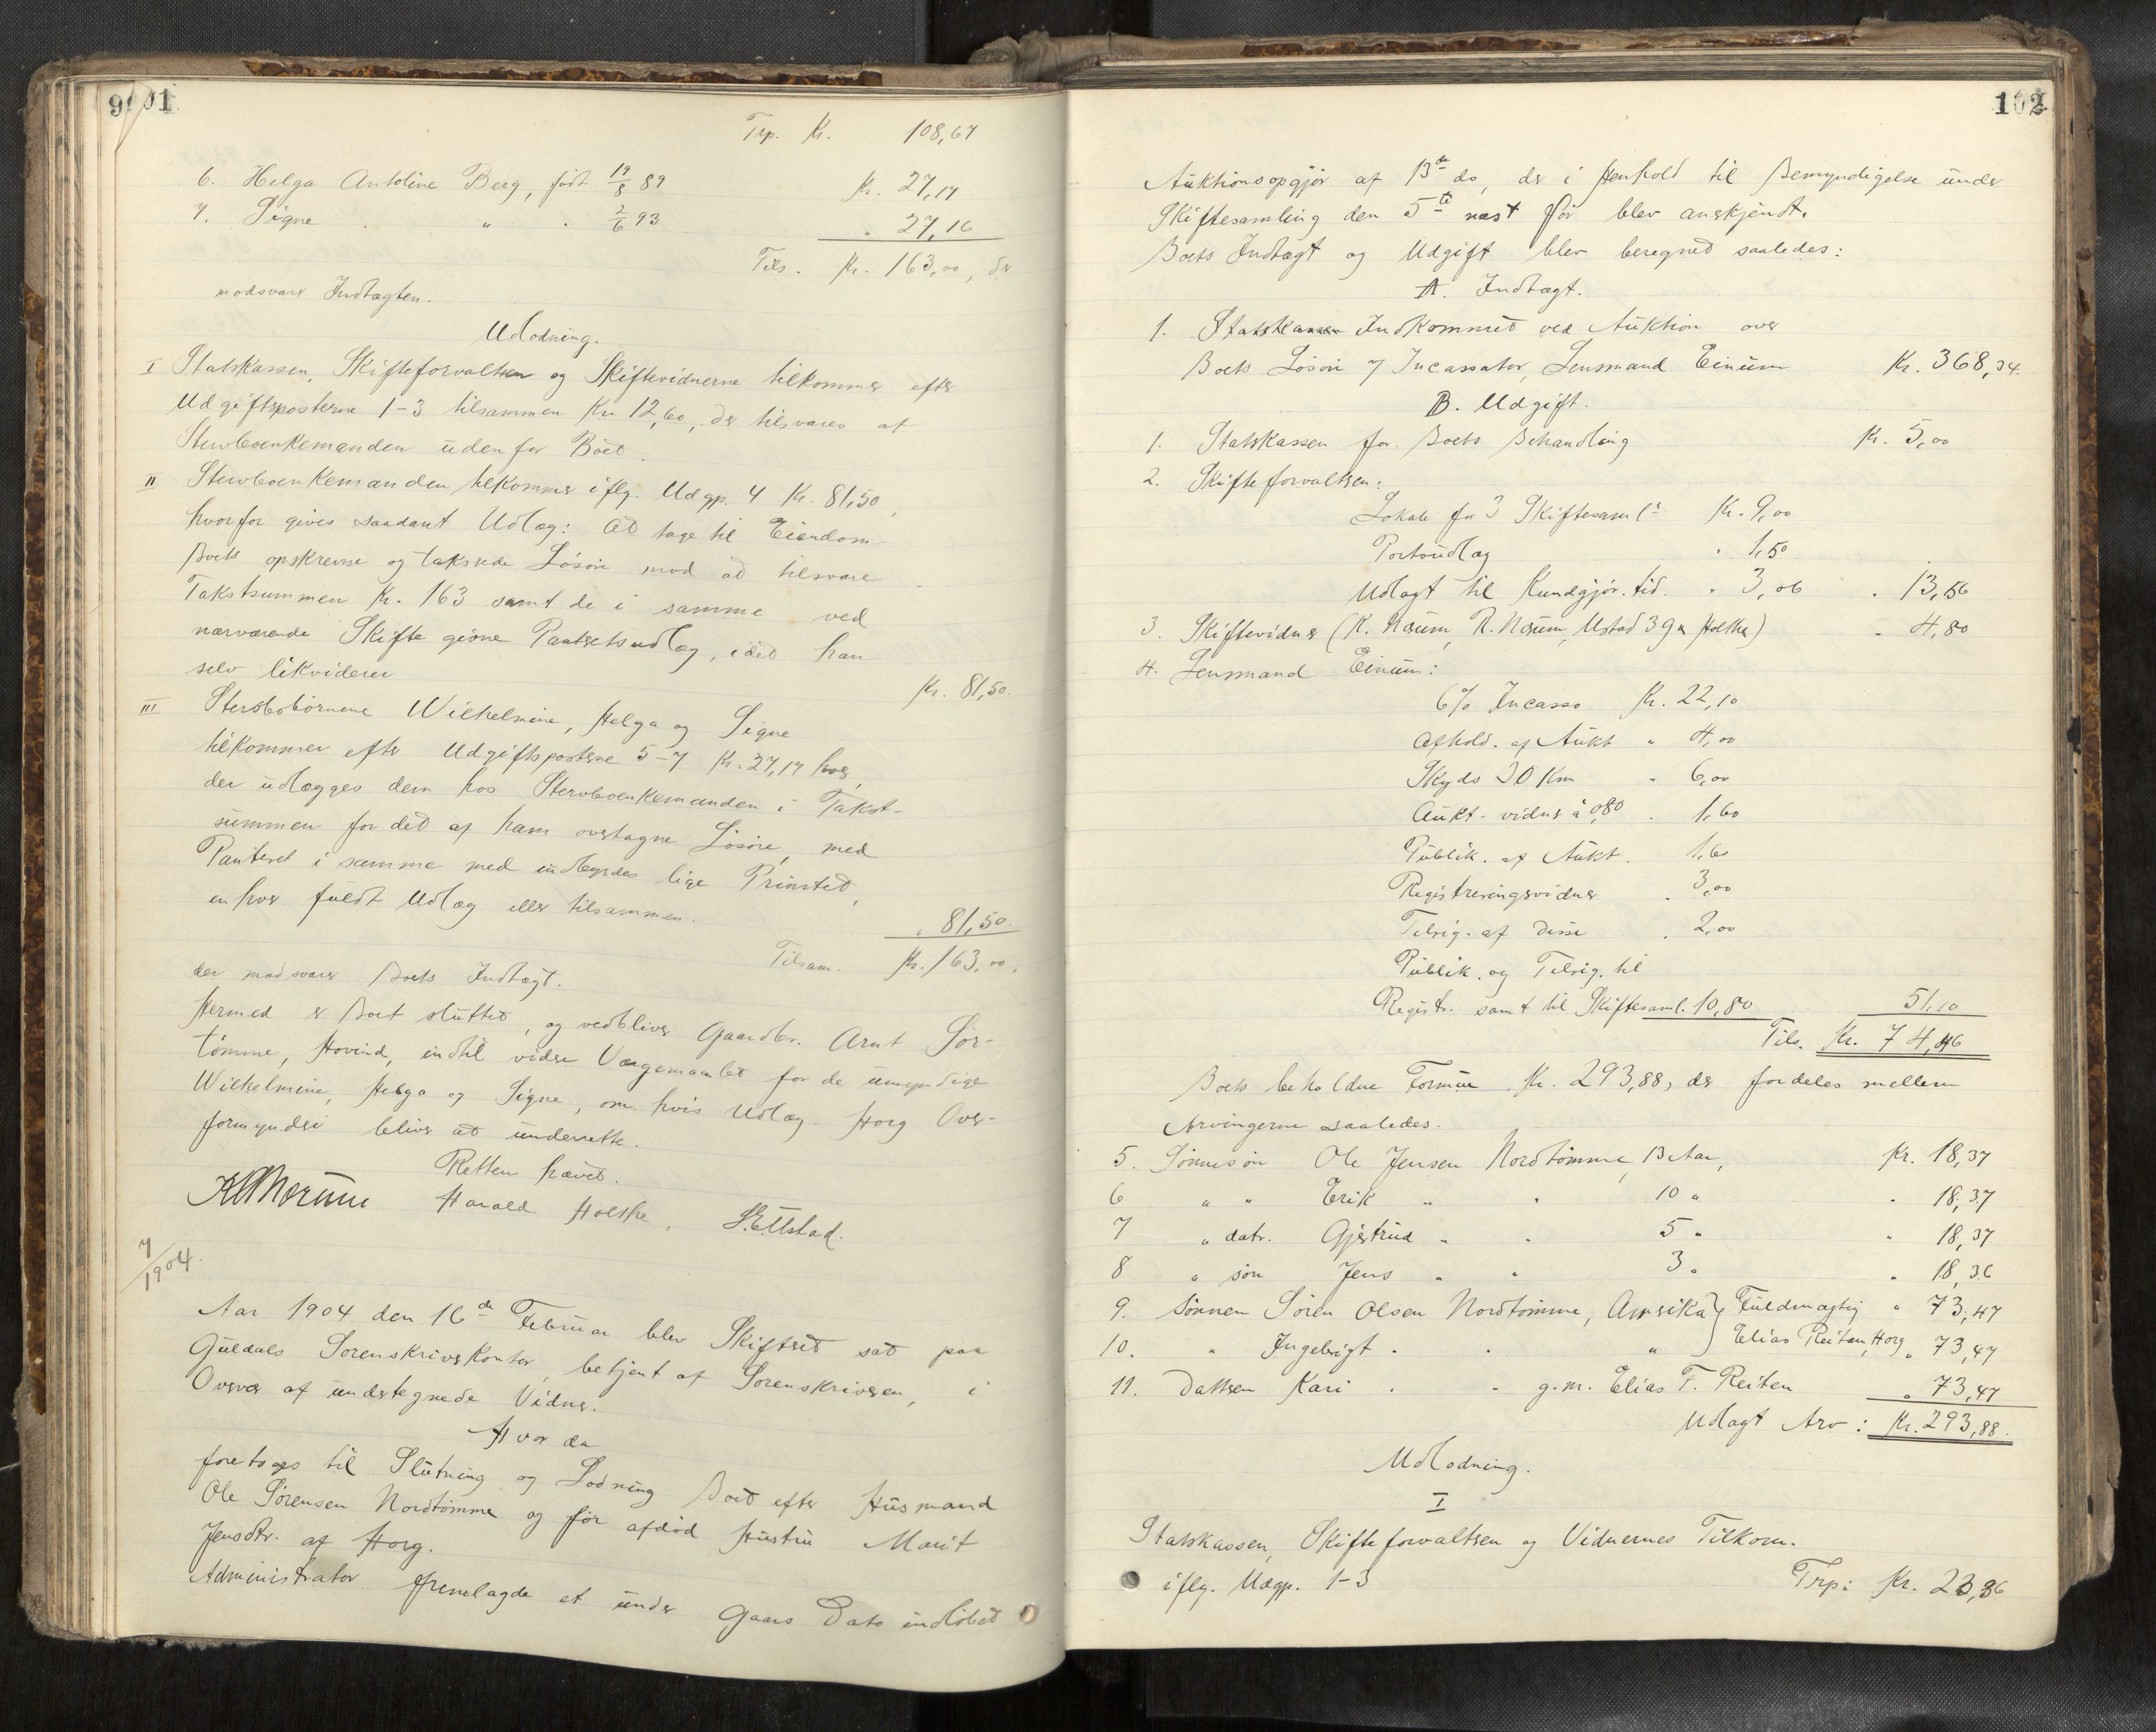 101
Trp. Kr. 108,67
6. Helga Antoline Berg, født 19/8 89 Kr. 27,17
7. Signe " " 2/6 93 " 27,16
Tils. Kr. 163,00, der
modsvarer Indtægten.
Udlodning.
I Statskassen, Skifteforvalteren og Skiftevidnerne tilkommer efter
Udgiftsposterne 1-3 tilsammen Kr. 12,60, der tilsvares af
Stervboenkemanden udenfor Boet.
II Stervboenkemanden tilkommer iflg. Udgp. 4 Kr. 81,50,
hvorfor gives saadant Udlæg: At tage til Eiendom
Boets opskrevne og takserede Løsøre mod at tilsvare
Takstsummen Kr. 163 samt de i samme ved
nærværende Skifte givne Panteretsudlæg, idet han
selv likviderer Kr. 81,50.
III Stervbobørnene Wilhelmine, Helga og Signe
tilkommer efter Udgiftsposterne 5-7 Kr. 27,17 hver,
der udlægges dem hos Stervboenkemanden i Takst-
summen for det af ham overtagne Løsøre, med
Panteret i samme med indbyrdes lige Prioritet,
enhver fuldt Udlæg eller tilsammen. " 81,50.
Tilsam. Kr. 163,00,
der modsvarer Boets Indtægt.
Hermed er Boet sluttet, og vedbliver Gaardbr. Arnt Sør-
tømme, Hovind, indtil videre Værgemaalet for de umyndige
Wilhelmine, Helga og Signe, om hvis Udlæg Horg Over-
formynderi bliver at underrette.
Retten hævet.
Harald Holthe, S. E. Ustad.
7/1904.
Aar 1904 den 16de Februar blev Skifteret sat paa
Guldals Sorenskriverkontor, betjent af Sorenskriveren, i
Overvær af undertegnede Vidner.
Hvor da
foretoges til Slutning og Lodning Boet efter Husmand
Ole Sørensen Nordtømme og før afdød Hustru Marit
Jensdtr. af Horg.
Administrator fremlagde et under Gaars Dato indløbet
102
Auktionsopgjør af 13de ds, der i Henhold til Bemyndigelse under
Skiftesamling den 5te næst før blev anskjendt.
Boets Indtægt og Udgift blev beregnet saaledes:
A. Indtægt.
1. Statskassen Indkommet ved Auktion over
Boets Løsøre / Incassator, Lensmand Einum Kr. 368,34.
B. Udgift.
1. Statskassen for Boets Behandling Kr. 5,00
2. Skifteforvalteren:
Lokale for 3 Skiftesaml.r Kr. 9,00
Portoudlæg " 1,50
Udlagt til Kundgjør. tid. " 3,06 " 13,56
3. Skiftevidner (K. Næum, R. Næum, Ustad 3 g & Holthe) " 4,80
4. Lensmand Einum:
6% Incasso Kr. 22,10
Afhold. af Aukt " 4,00
Skyds 30 Km " 6,00
Aukt. vidner à 0,80 " 1,60
Publik. af Aukt. 1,60
Registreringsvidner " 3,00
Tilsig. af disse " 2,00
Publik. og Tilsig. til
Registr. samt til Skiftesaml. 10,80 51,10
Tils. Kr. 74,46
Boets beholdne Formue Kr. 293,88, der fordeles mellem
Arvingerne saaledes.
5. Sønnesøn Ole Jensen Nordtømme, 13 Aar, Kr. 18,37
6 " " Erik " " 10 " " 18,37
7 " datr. Gjertrud " " 5 " " 18,37
8 " søn Jens " " 3 " " 18,36
9. Sønnen Søren Olsen Nordtømme, Amerika } Fuldmægtig " 73,47
10. " Ingebrigt " " " } Elias Reitan, Horg " 73,47
11. Datteren Kari " " g.m. Elias F. Reiten " 73,47
Udlagt Arv: Kr. 293,88.
Udlodning.
I
Statskassen, Skifteforvalteren og Vidnernes Tilkom.
iflg. Udgp. 1-3 Trp: Kr. 23,36